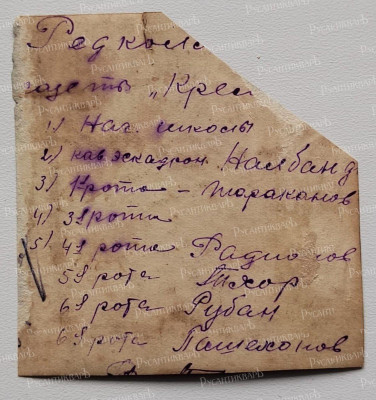 Редкол
газеты „Крем
1) Нач. школы
2) кав эскадрон Налбанд
3) 1 рота – Тараканов
4) 3я рота
5) 4я рота Радионов
5я рота Тхор
6я рота Рубан
6я рота Пашехонов